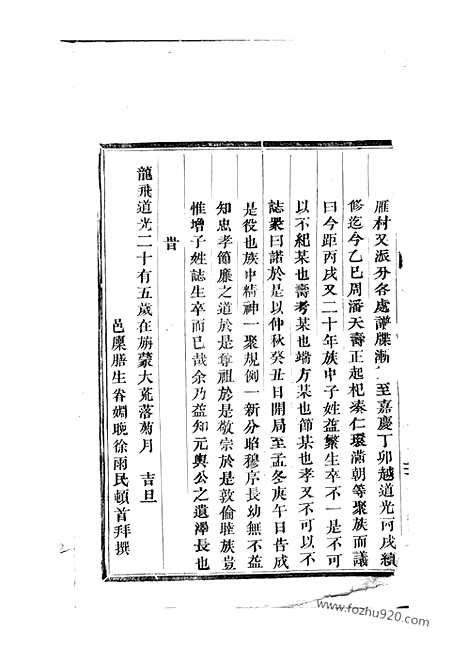 雁村又派分各處譜牒漸 至嘉慶丁卯越道光丙戌續
修迄今乙巳周潘天壽正起杞泰仁環滿朝等聚族而議
曰今距丙戌又二十年族中子姓益繁生卒不一是不可
以不紀某也壽考某也端方某也節某也孝又不可以不
誌衆曰諾於是以仲秋癸丑日開局至孟冬庚午日告成
是役也族中精神一聚規例一新分昭穆序長幼無不益
知忠孝節廉之道於是尊祖於是敬宗於是敦倫睦族豈
惟增子姓誌生卒而已哉余乃益知元輿公之遺澤長也
旹
龍飛道光二十有五歲在旃蒙大荒落菊月 吉旦
邑廩膳生眷姻晚徐雨民頓首拜撰
www.fozhu920.com